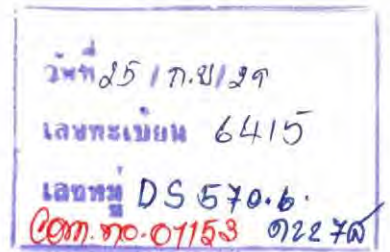 วันที่ 25 / ก.ย / 29
เลขทะเบียน 6415
เลขหมู่ DS 570.6.
com. no. 01153